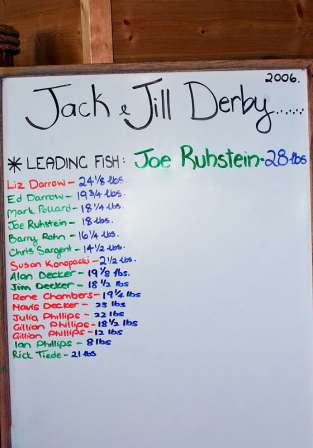 2006.
Jack & Jill Derby......
* LEADING FISH: Joe Ruhstein-28 lbs
Liz Darrow - 24 1/8 lbs.
Ed Darrow - 19 3/4 lbs.
Mark Pollard - 18 1/4 lbs.
Joe Ruhstein - 18 lbs.
Barry Rohn - 16 1/4 lbs.
Chris Sargent - 14 1/2 lbs.
Susan Konopacki - 2 1/2 lbs.
Alan Decker - 19 7/8 lbs.
Jim Decker - 18 1/2 lbs
Rene Chambers - 19 1/4 lbs
Mavis Decker - 23 lbs
Julia Phillips - 22 lbs
Gillian Phillips - 18 1/2 lbs
Gillian Phillips - 12 lbs
Ian Phillips - 8 lbs
Rick Tiede - 21 lbs